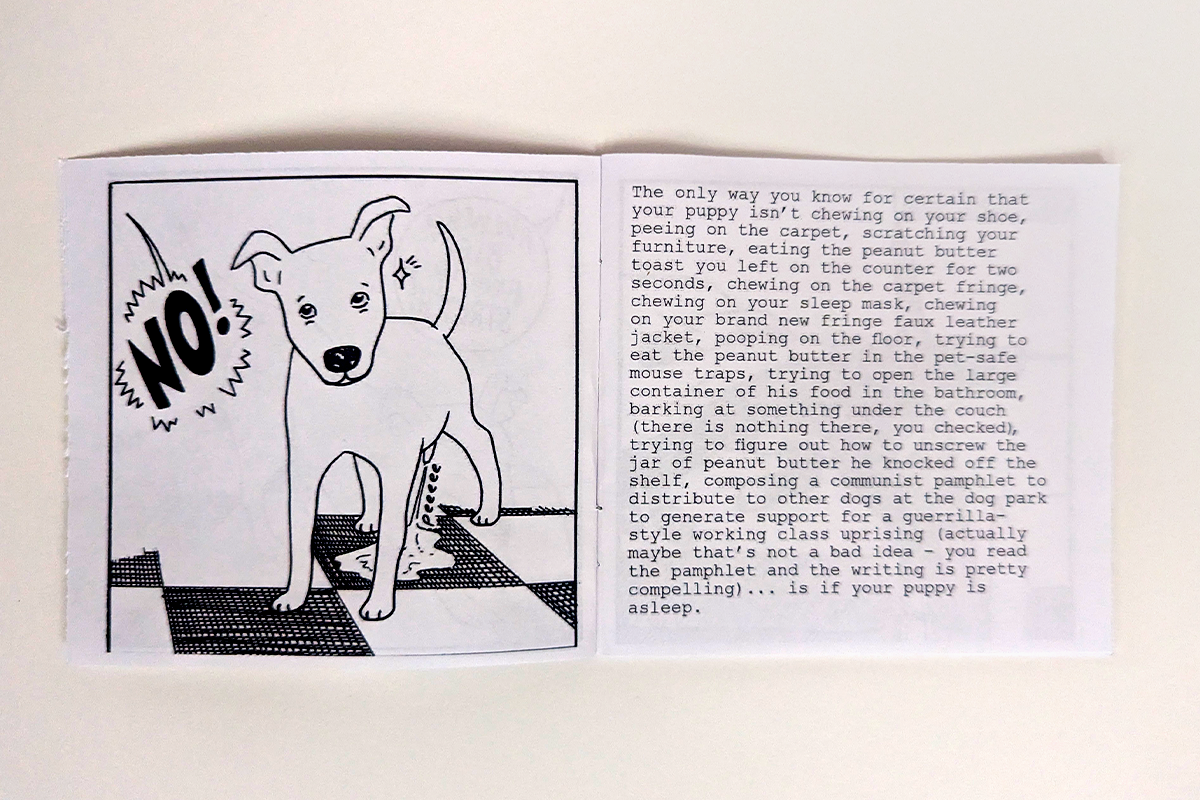 NO!
peeee
The only way you know for certain that
your puppy isn't chewing on your shoe,
peeing on the carpet, scratching your
furniture, eating the peanut butter
toast you left on the counter for two
seconds, chewing on the carpet fringe,
chewing on your sleep mask, chewing
on your brand new fringe faux leather
jacket, pooping on the floor, trying to
eat the peanut butter in the pet-safe
mouse traps, trying to open the large
container of his food in the bathroom,
barking at something under the couch
(there is nothing there, you checked),
trying to figure out how to unscrew the
jar of peanut butter he knocked off the
shelf, composing a communist pamphlet to
distribute to other dogs at the dog park
to generate support for a guerrilla-
style working class uprising (actually
maybe that's not a bad idea - you read
the pamphlet and the writing is pretty
compelling)... is if your puppy is
asleep.